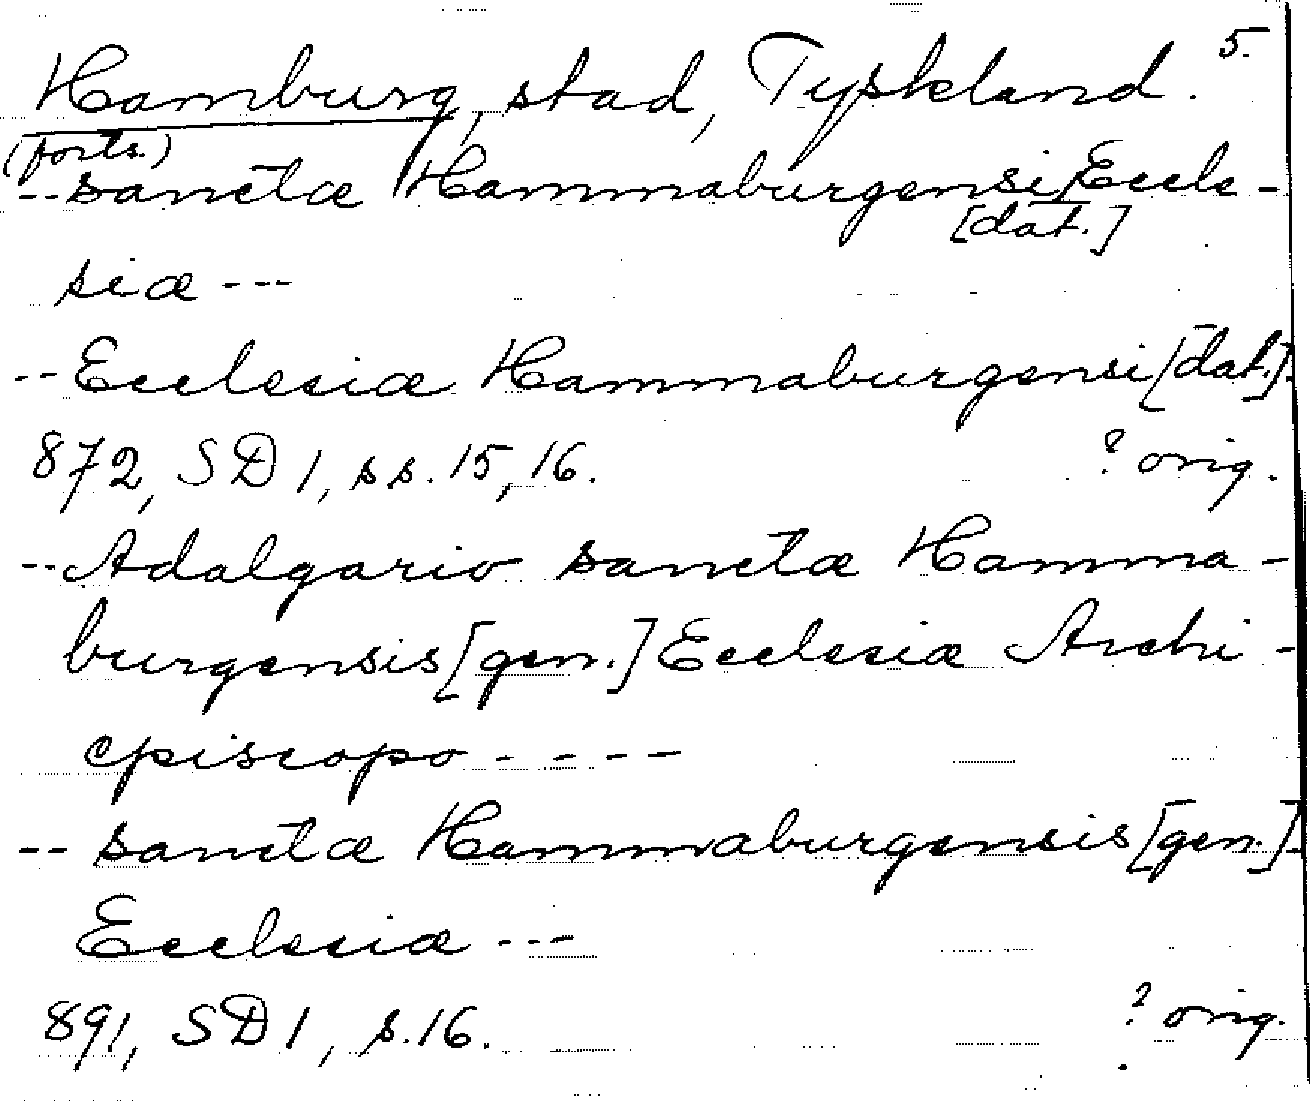 5.
Hamburg, stad, Tyskland.
(forts.)
-- sanctæ Hammaburgensi Eccle-
[dat.]
siæ ---
-- Ecclesiæ Hammaburgensi [dat.]
872, SD 1, ss. 15, 16. ? orig.
-- Adalgario sanctæ Hamma-
burgensis [gen.] Ecclesiæ Archi-
episcopo - - - - -
-- sanctæ Hammaburgensis [gen.]
Ecclesiæ ---
891, SD 1, s. 16. ? orig.